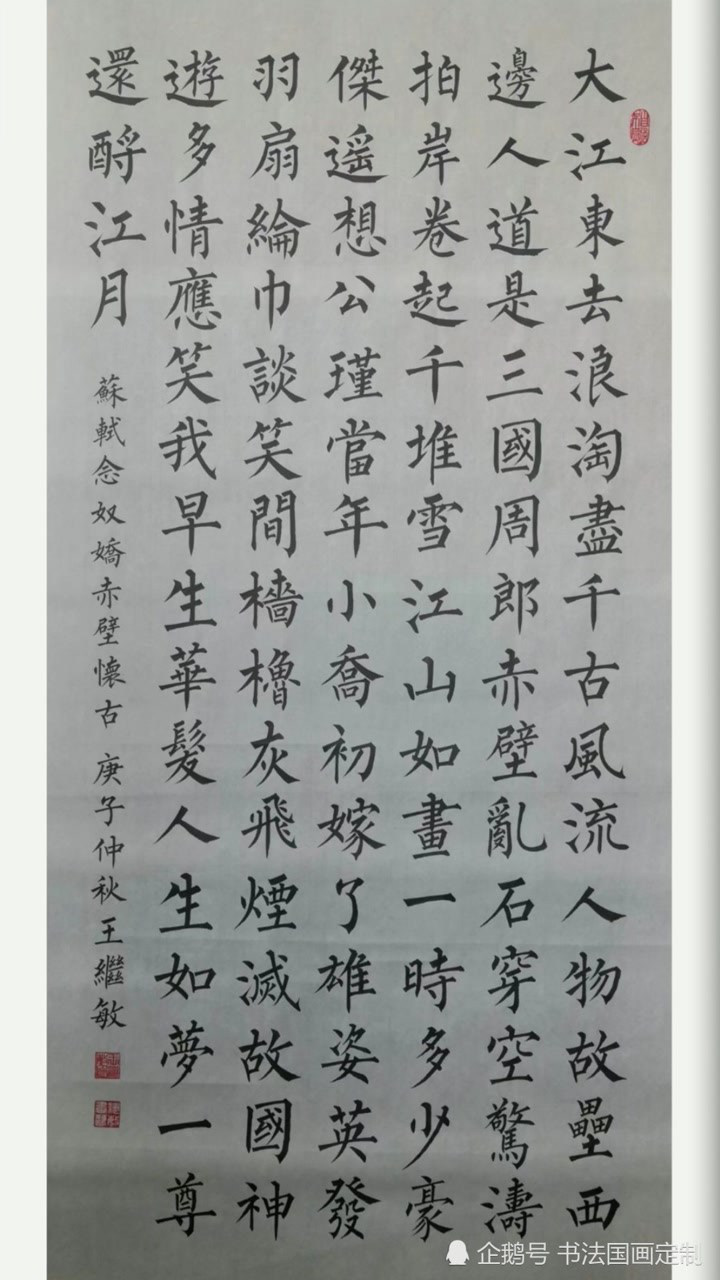 大江東去浪淘盡千古風流人物故壘西
邊人道是三國周郎赤壁亂石穿空驚濤
拍岸卷起千堆雪江山如畫一時多少豪
傑遥想公瑾當年小喬初嫁了雄姿英發
羽扇綸巾談笑間檣櫓灰飛煙滅故國神
遊多情應笑我早生華髮人生如夢一尊
還酹江月
蘇軾念奴嬌赤壁懷古 庚子仲秋王繼敏
企鹅号 书法国画定制